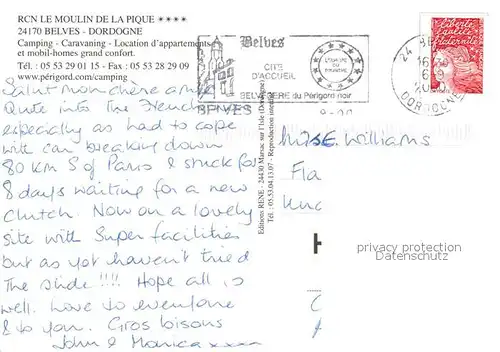 RCN LE MOULIN DE LA PIQUE ****
24170 BELVES - DORDOGNE
Camping - Caravaning - Location d'appartements
et mobil-homes grand confort.
Tél. : 05 53 29 01 15 - Fax : 05 53 28 29 09
www.périgord.com/camping
Salut mon chère amie
Quite into The French
especially as had to cope
with car breaking down
80 km S of Paris & stuck for
8 days waiting for a new
clutch. Now on a lovely
site with super facilities
but as yet haven't tried
The slide !!!! Hope all is
well. Love to everyone
& to you. Gros bisons
John & Monica xxxx
Belves
CITE
D'ACCUEIL
BELVEDERE du Périgord noir
BELVES
Editions RENE - 24430 Marsac sur l'Isle (Dordogne)
Tél. : 05.53.04.13.07 - Reproduction interdite
Liberté
égalité
fraternité
24
DORDOGNE
Williams
Fla
privacy protection
Datenschutz